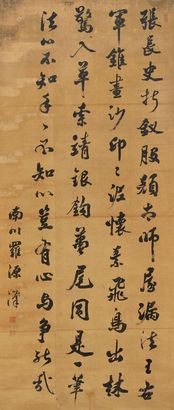 張長史折釵股顏太師屋漏法王右
軍錐畫沙印〻泥懷素飛鳥出林
驚入草索靖銀鉤蠆尾同是一筆
法心不知手〻不知心豈有心與爭能哉
南川羅源漢